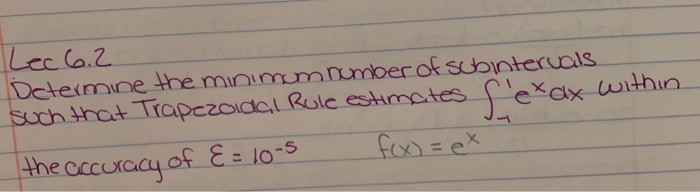 Lec 6.2
Determine the minimum number of subintervals
such that Trapezoidal Rule estimates ∫₋₁¹ eˣ dx within
the accuracy of ε = 10⁻⁵ f(x) = eˣ